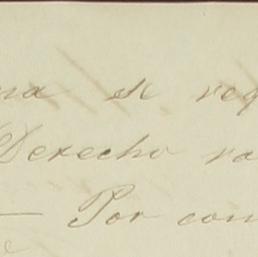 na se req
Derecho ra
— Por con